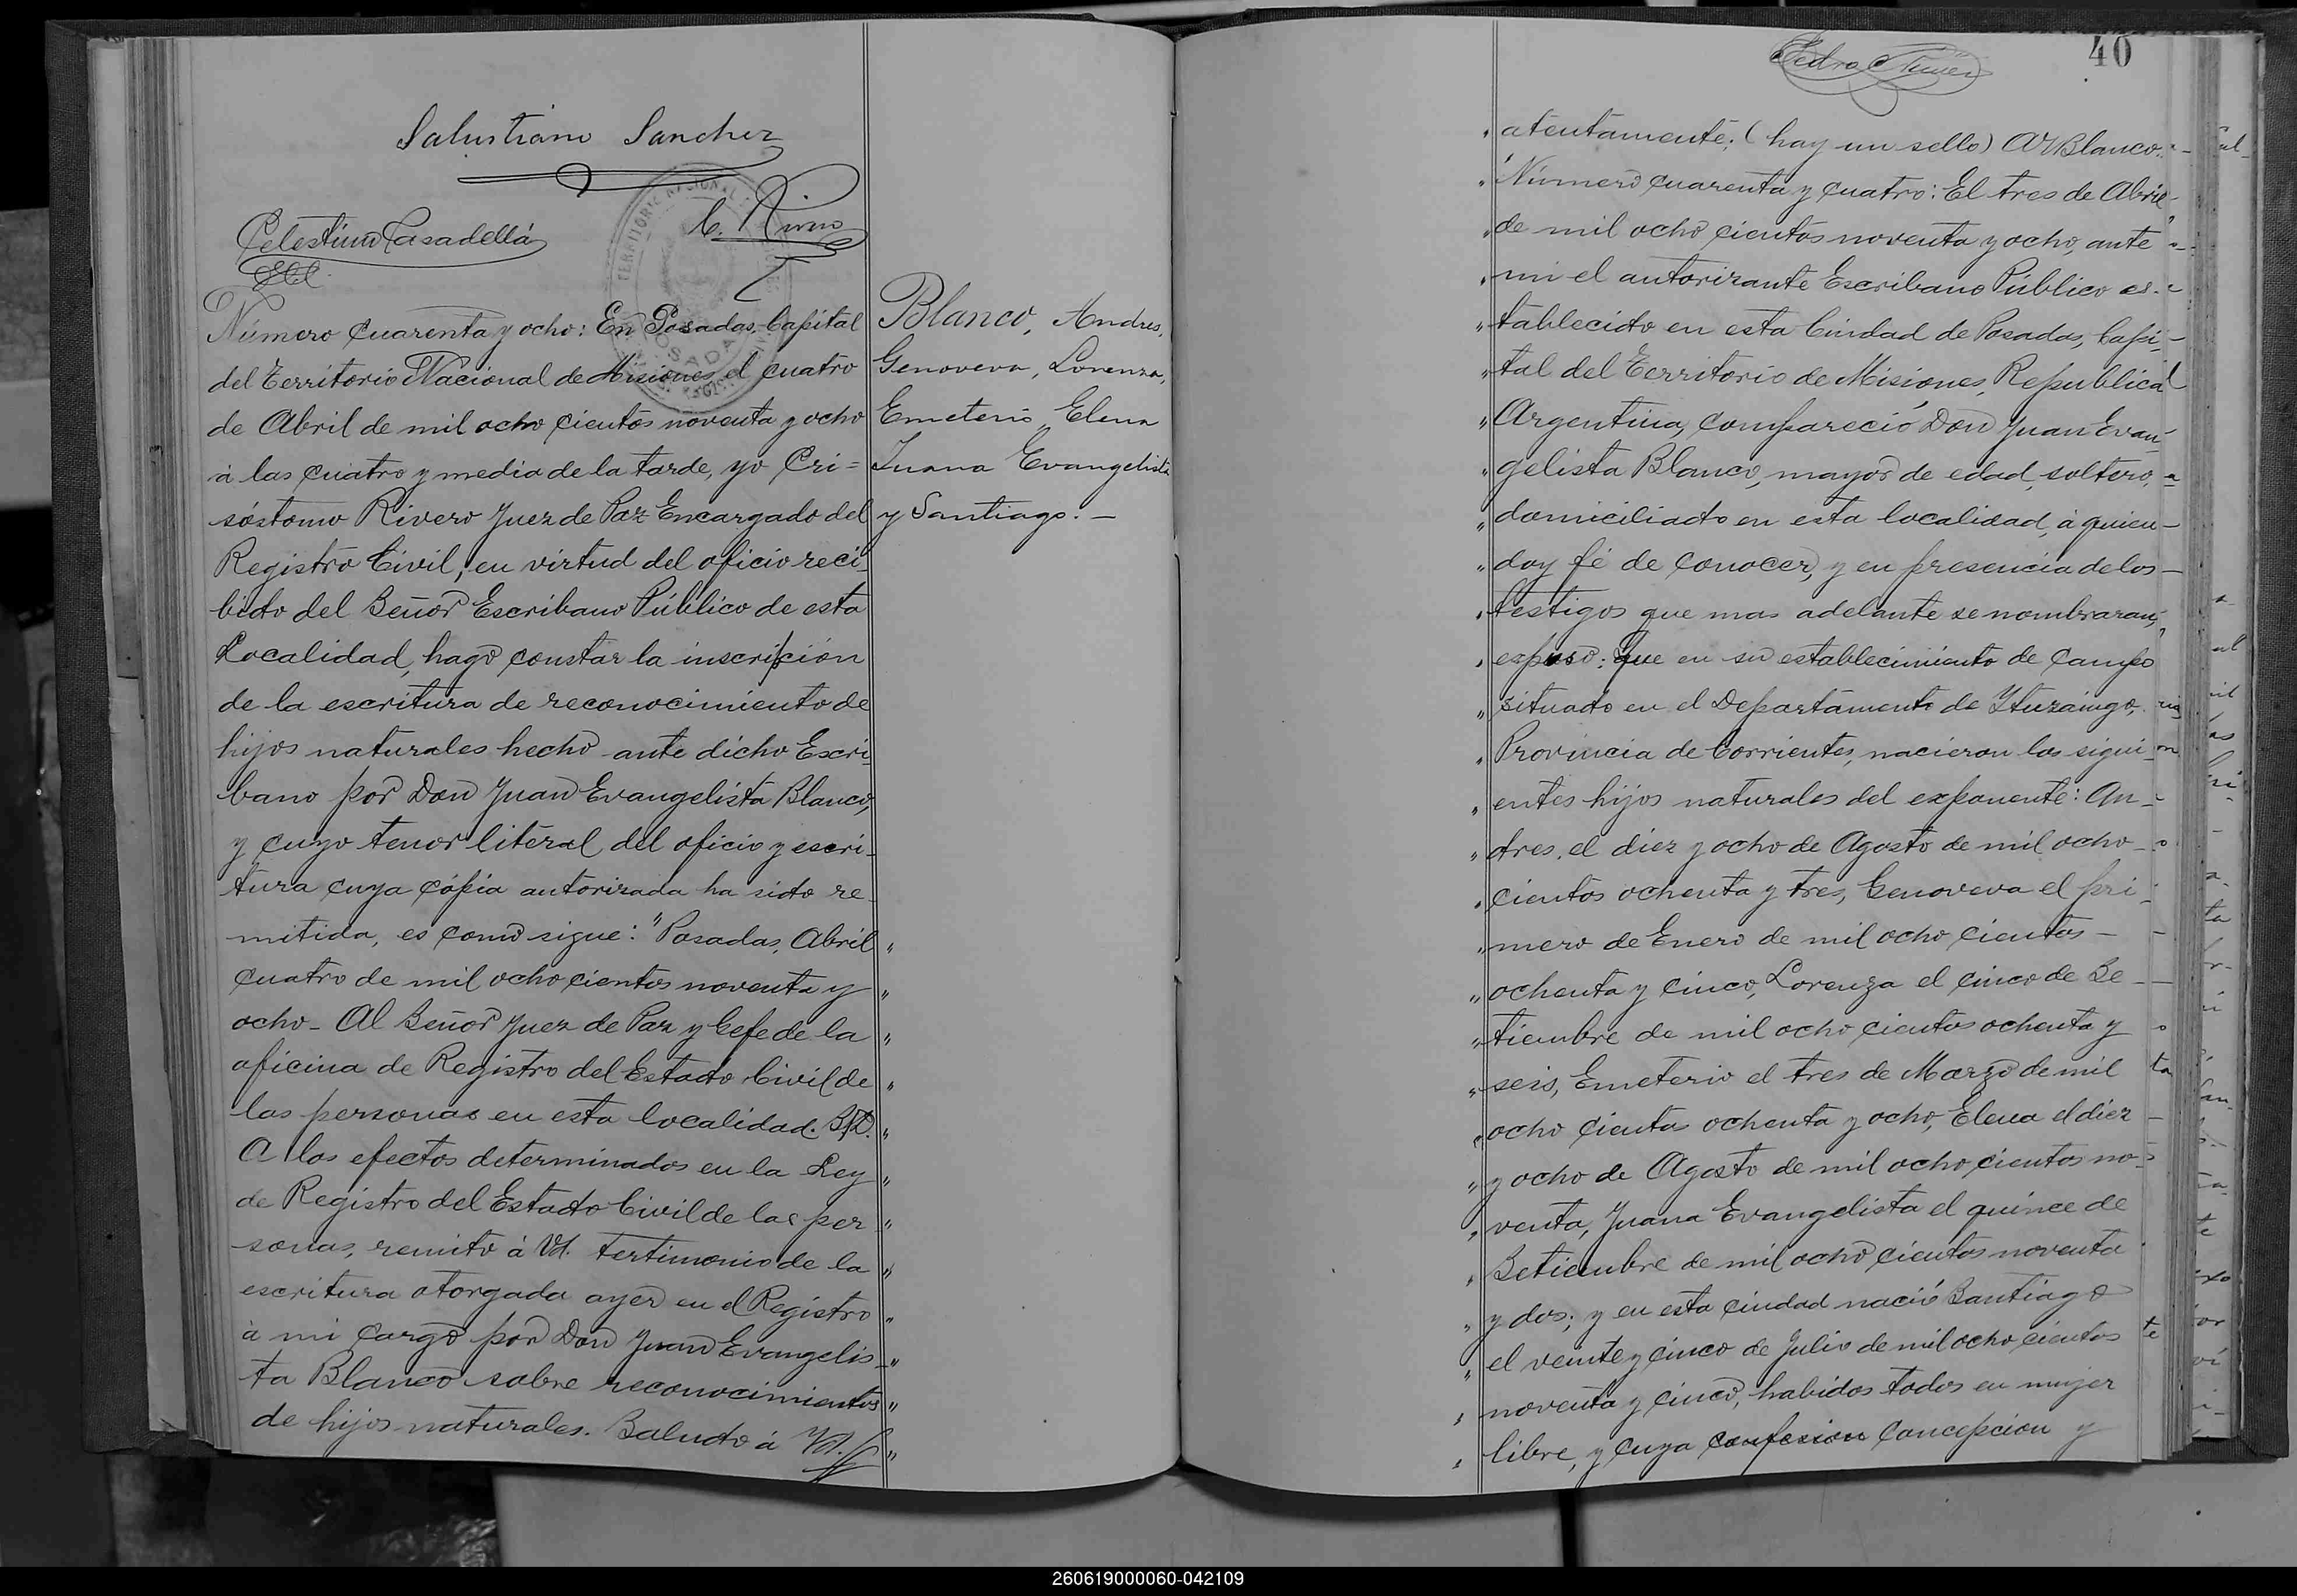 Salustiano Sanchez
C. Rivero
Celestino Casadellá
Número cuarenta y ocho: En Posadas, Capital
del Territorio Nacional de Misiones el cuatro
de Abril de mil ocho cientos noventa y ocho
á las cuatro y media de la tarde, yo Cri=
sóstomo Rivero Juez de Paz Encargado del
Registro Civil, en virtud del oficio reci-
bido del Señor Escribano Público de esta
Localidad, hago constar la inscripción
de la escritura de reconocimiento de
hijos naturales hecho ante dicho Escri-
bano por Don Juan Evangelista Blanco,
y cuyo tenor literal del oficio y escri-
tura cuya cópia autorizada ha sido re-
mitida, es como sigue: "Posadas, Abril "
cuatro de mil ocho cientos noventa y "
ocho - Al Señor Juez de Paz y Gefe de la "
oficina de Registro del Estado Civil de "
las personas en esta localidad. S/D. "
A los efectos determinados en la Ley "
de Registro del Estado Civil de las per "
sonas, remito á Vd. tertimonio de la "
escritura otorgada ayer en el Registro "
á mi cargo por Don Juan Evangelis- "
ta Blanco sobre reconocimientos "
de hijos naturales. Saludo á Vd. "
Blanco, Andres,
Genoveva, Lorenza,
Emeterio, Elena
Juana Evangelista
y Santiago. -
40
Pedro Nuñez
" atentamente; (hay un sello) A Blanco. -
" Número cuarenta y cuatro: El tres de Abril
" de mil ocho cientos noventa y ocho, ante
" mi el autorizante Escribano Público es-
" tablecido en esta Ciudad de Posadas, Capi-
" tal del Territorio de Misiones, Republica
" Argentina, compareció Don Juan Evan-
" gelista Blanco, mayor de edad, soltero,
" domiciliado en esta localidad, á quien
" doy fé de conocer, y en presencia de los
" testigos que mas adelante se nombraran,
" expuso: Que en su establecimiento de campo
" situado en el Departamento de Ytuzaingo,
" Provincia de Corrientes, nacieron los sigui-
" entes hijos naturales del exponente: An-
" dres, el diez y ocho de Agosto de mil ocho
" cientos ochenta y tres, Genoveva el pri-
" mero de Enero de mil ocho cientos -
" ochenta y cinco, Lorenza el cinco de Se-
" tiembre de mil ocho cientos ochenta y
" seis, Emeterio el tres de Marzo de mil
" ocho cientos ochenta y ocho, Elena el diez
" y ocho de Agosto de mil ocho cientos no-
" venta, Juana Evangelista el quince de
" Setiembre de mil ocho cientos noventa
" y dos; y en esta ciudad nació Santiago
" el veinte y cinco de Julio de mil ocho cientos
" noventa y cinco, habidos todos en mujer
" libre, y cuya confesion concepcion y
260619000060-042109